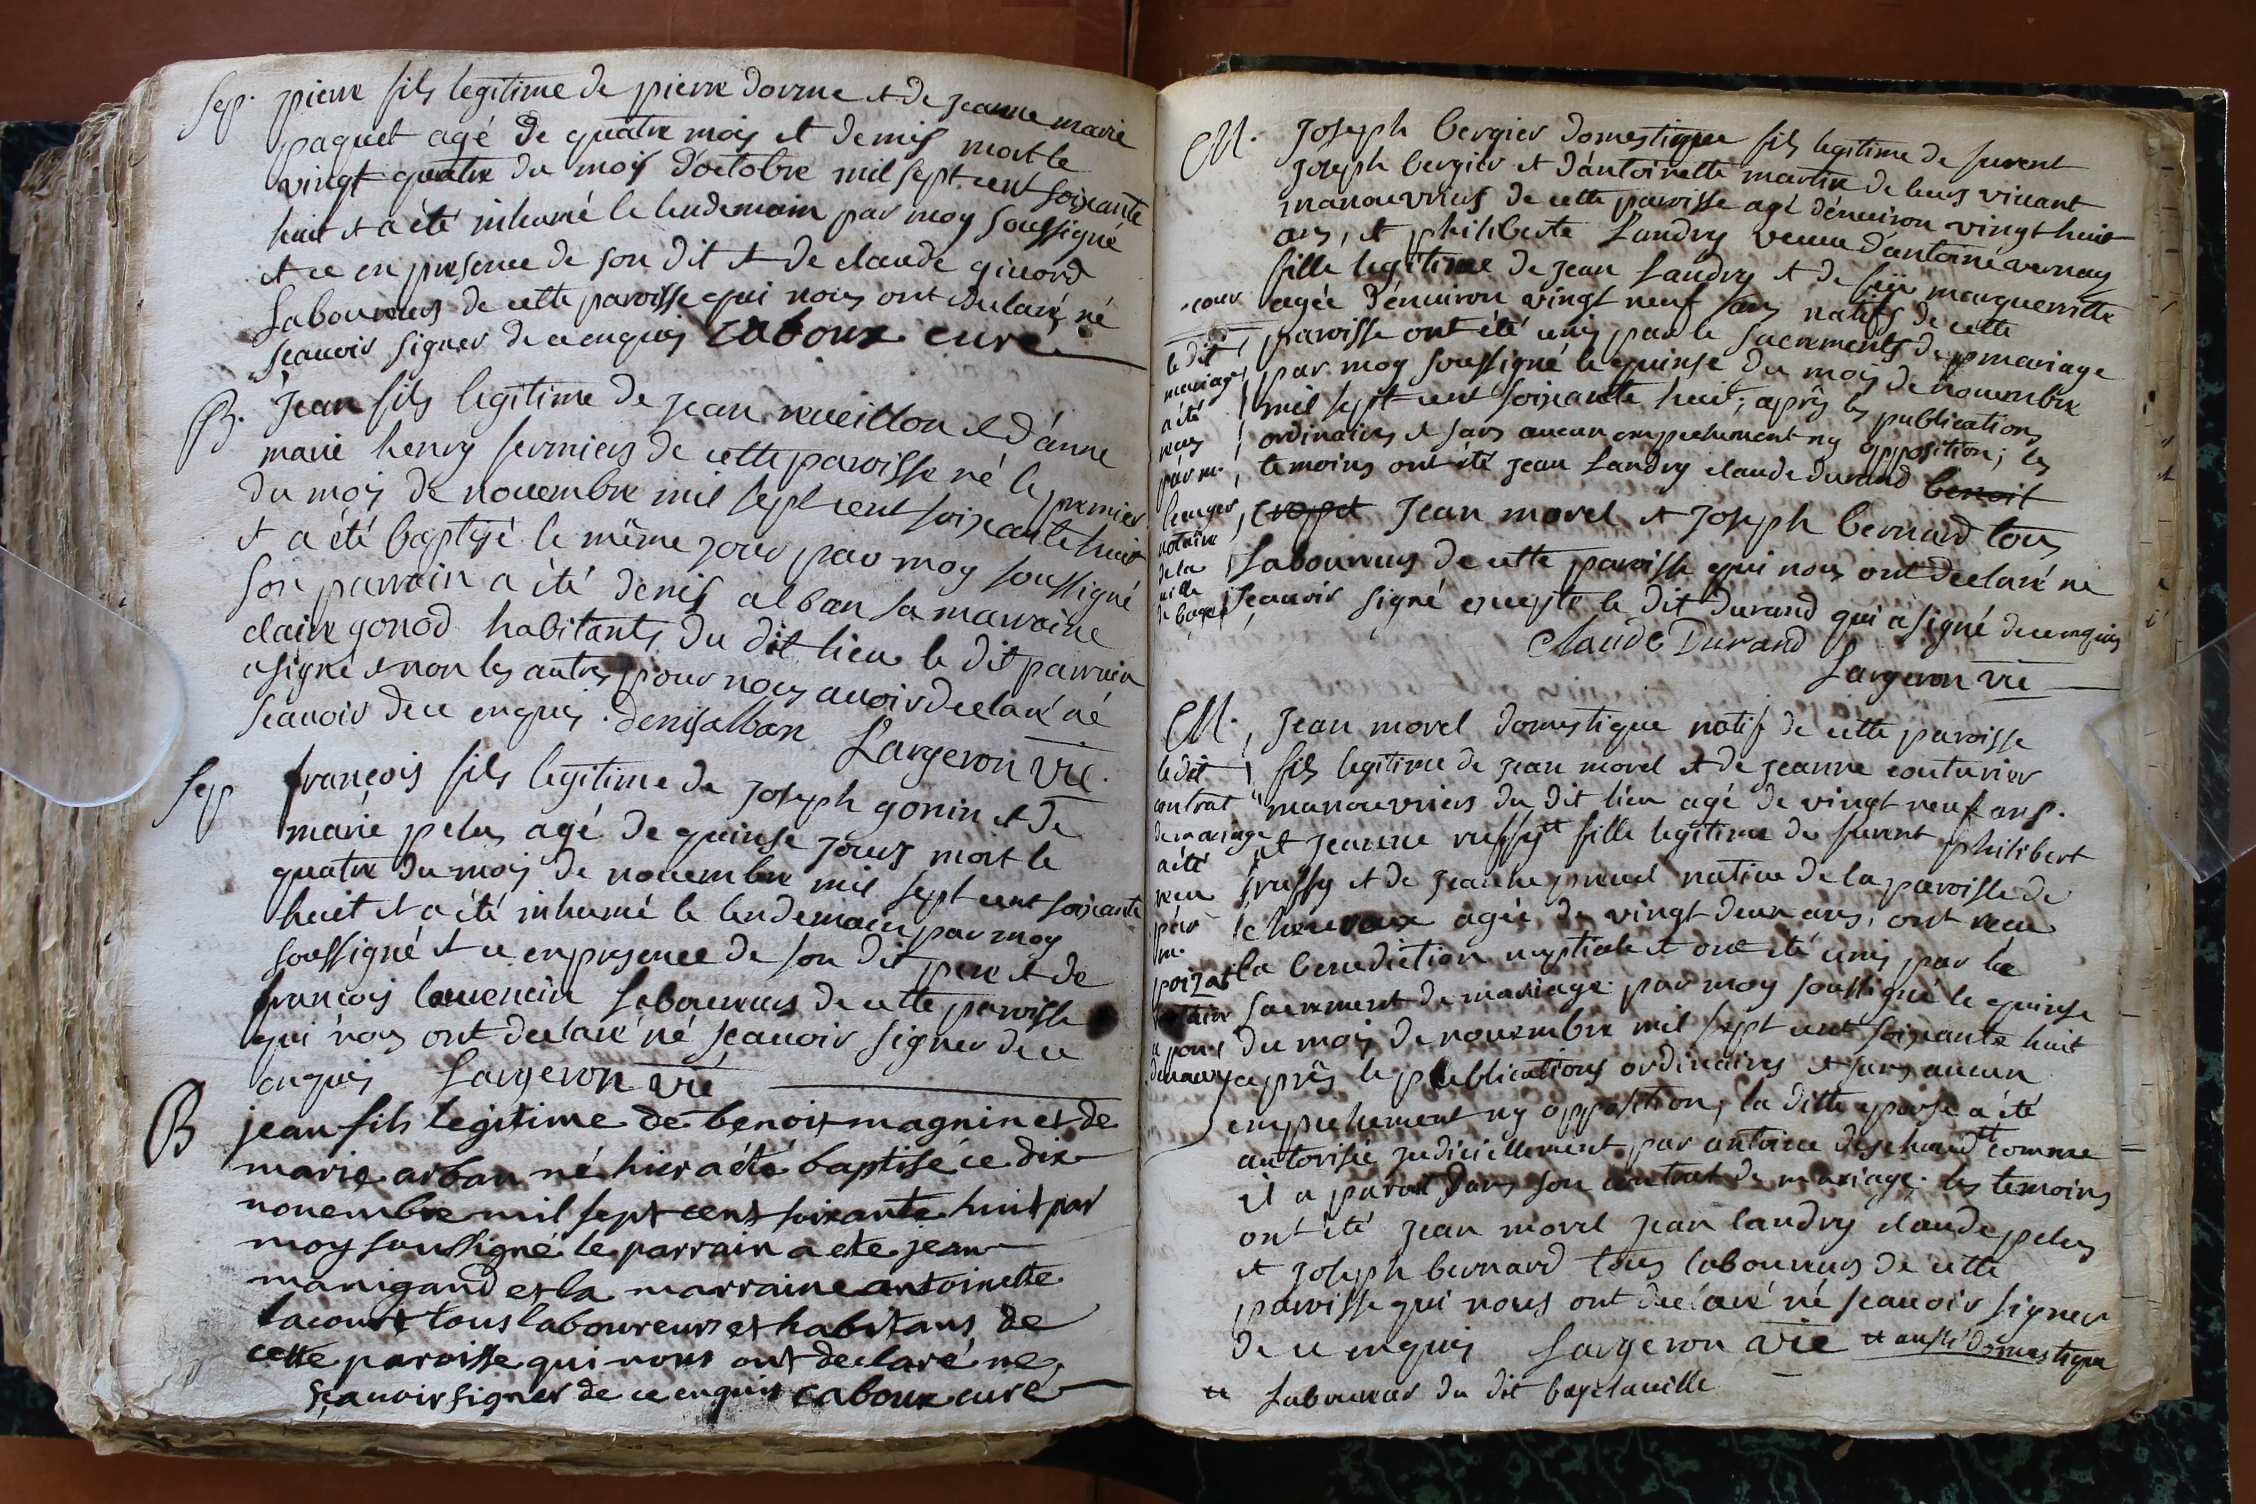 Sep. pierre fils legitime de pierre dorme et de jeanne marie
paquet agé de quatre mois et demis mort le
vingt quatre du mois d'octobre mil sept cent soixante
huit et a été inhumé le lendemain par moy soussigné
et ce en presence de son dit et de claude giuord
Laboureurs de cette paroisse qui nous ont declaré né
sçauoir signer de ce enquis caboux curé
B. Jean fils legitime de jean reueillon et d'anne
marie henry fermiers de cette paroisse né le premier
du mois de nouembre mil sept cent soixante huit
et a été baptisé le même jour par moy soussigné
son parrain a été denis alban sa marraine
claire gonod habitants du dit lieu le dit parrain
a signé et non les autres pour nous auoir declaré né
sçauoir de ce enquis. denis alban Largeron vic.
Sep françois fils legitime de joseph gonin et de
marie pelus agé de quinse jours mort le
quatre du mois de nouembre mil sept cent soixante
huit et a été inhumé le lendemain par moy
soussigné et ce en presence de son dit pere et de
françois Laurencin Laboureurs de cette paroisse
qui nous ont declaré né sçauoir signer de ce
enquis Largeron vic
B jean fils legitime de benoit magnin et de
marie arban né hier a été baptisé ce dix
nouembre mil sept cent soixante huit par
moy soussigné le parrain a ete jean
manigand et la marraine antoinette
lacourt tous laboureurs et habitans de
cette paroisse qui nous ont declaré ne
sçauoir signer de ce enquis caboux curé
M. Joseph bergier domestique fils legitime de furent
joseph bergier et d'antoinette martin de leurs viuant
manouvriers de cette paroisse agé d'enuiron vingt huit
ans, et philiberte Landry veuue d'antoine vernay
fille legitime de jean Landry et de füe margueritte
-cour agée d'enuiron vingt neuf ans natifs de cette
paroisse ont été unis par le sacrements de mariage
par moy soussigné le quinse du mois de nouembre
mil sept cent soixante huit; après les publications
ordinaires et sans aucun empechement ny opposition; les
temoins ont été jean Landry claude durand benoit
croppet Jean morel et Joseph bernard tous
Laboureurs de cette paroisse qui nous ont declaré ne
sçauoir signé excepté le dit durand qui a signé de ce enquis
Claude Durand
Largeron vic
le dit
mariage
a été
receu
par me
notaire
de la
uille
de bagé
M. Jean morel domestique natif de cette paroisse
fils legitime de jean morel et de jeanne couturier
manouvriers du dit lieu agé de vingt neuf ans.
et jeanne ruffy tt fille legitime de furent philibert
ruffy et de jeanne natiue de la paroisse de
cheuroux agée de vingt deux ans, ont receu
la benediction nuptiale et ont été unis par le
sacrement de mariage par moy soussigné le quinse
du mois de nouembre mil sept cent soixante huit
après les publications ordinaires et sans aucun
empechement ny opposition, la ditte epouse a été
autorisée judiciellement par antoine tt comme
il a paru dans son contrat de mariage. les temoins
ont été jean morel jean landry claude pelus
et joseph bernard tous laboureurs de cette
paroisse qui nous ont declaré né sçauoir signer
de ce enquis Largeron vic tt aussi domestique
tt Laboureur du dit bagé la uille
le dit
contrat
de mariage
a été
receu
par
me
poizat
notaire
a pont
de vaux